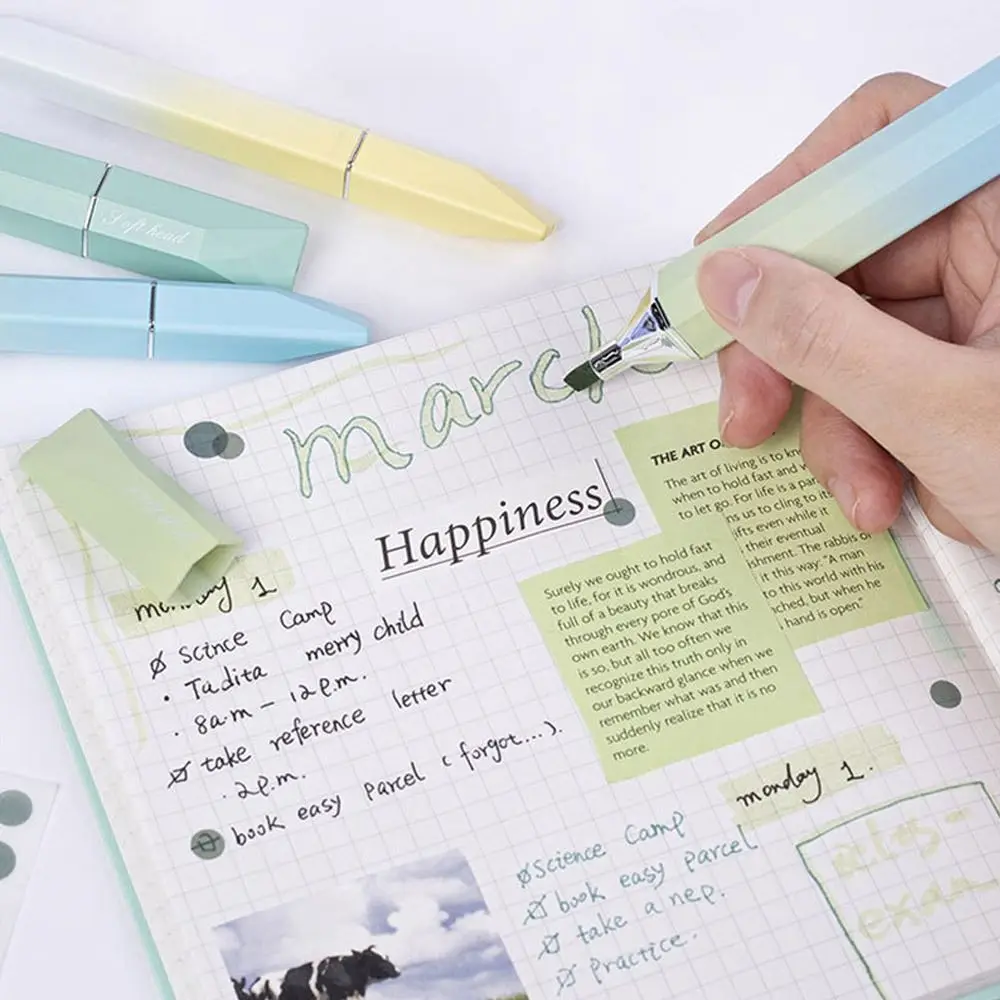 Soft head
march
Happiness
THE ART O
The art of living is to kn
when to hold fast and w
to let go. For life is a par
ns us to cling to its
ifts even while it
their eventual
ishment. The rabbis o
it this way: "A man
to this world with his
ched, but when he
hand is open."
Surely we ought to hold fast
to life, for it is wondrous, and
full of a beauty that breaks
through every pore of God's
own earth. We know that this
is so, but all too often we
recognize this truth only in
our backward glance when we
remember what was and then
suddenly realize that it is no
more.
monday 1
Scince Camp
· Tadita merry child
· 8a.m - 12p.m.
take reference letter
· 2p.m.
book easy parcel (forgot...).
monday 1.
Science Camp
book easy parcel
take a nep.
Practice.
exam